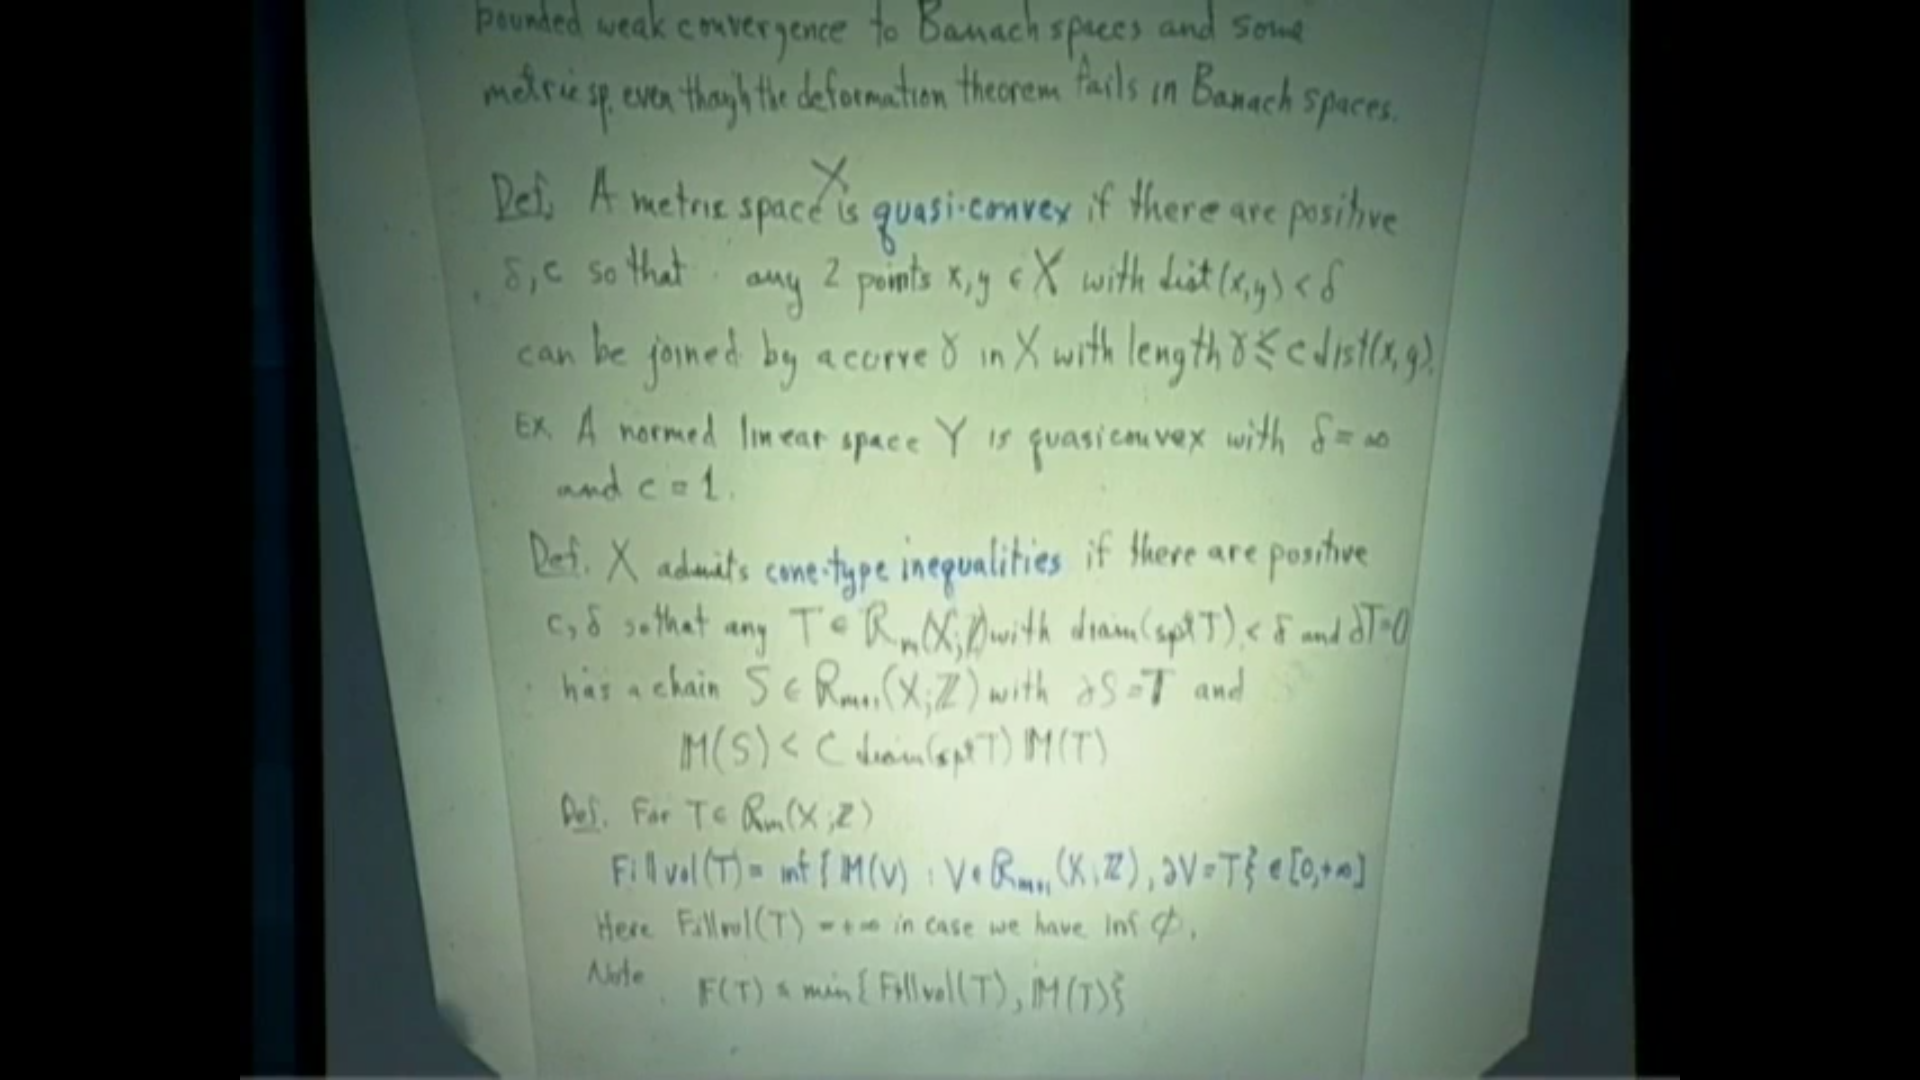 bounded weak convergence to Banach spaces and some
metric sp. even though the deformation theorem fails in Banach spaces.
Def. A metric space X is quasi-convex if there are positive
δ, c so that any 2 points x,y ∈ X with dist(x,y) < δ
can be joined by a curve γ in X with length γ ≤ c dist(x,y).
Ex. A normed linear space Y is quasiconvex with δ = ∞
and c = 1.
Def. X admits cone-type inequalities if there are positive
c, δ so that any T ∈ R_m(X;Z) with diam(spt T) < δ and ∂T=0
has a chain S ∈ R_{m+1}(X;Z) with ∂S = T and
M(S) < C diam(spt T) M(T)
Def. For T ∈ R_m(X;Z)
Fillvol(T) = inf { M(V) : V ∈ R_{m+1}(X;Z), ∂V = T } ∈ [0,+∞]
Here Fillvol(T) = +∞ in case we have inf ∅.
Note F(T) ≤ min{ Fillvol(T), M(T)}